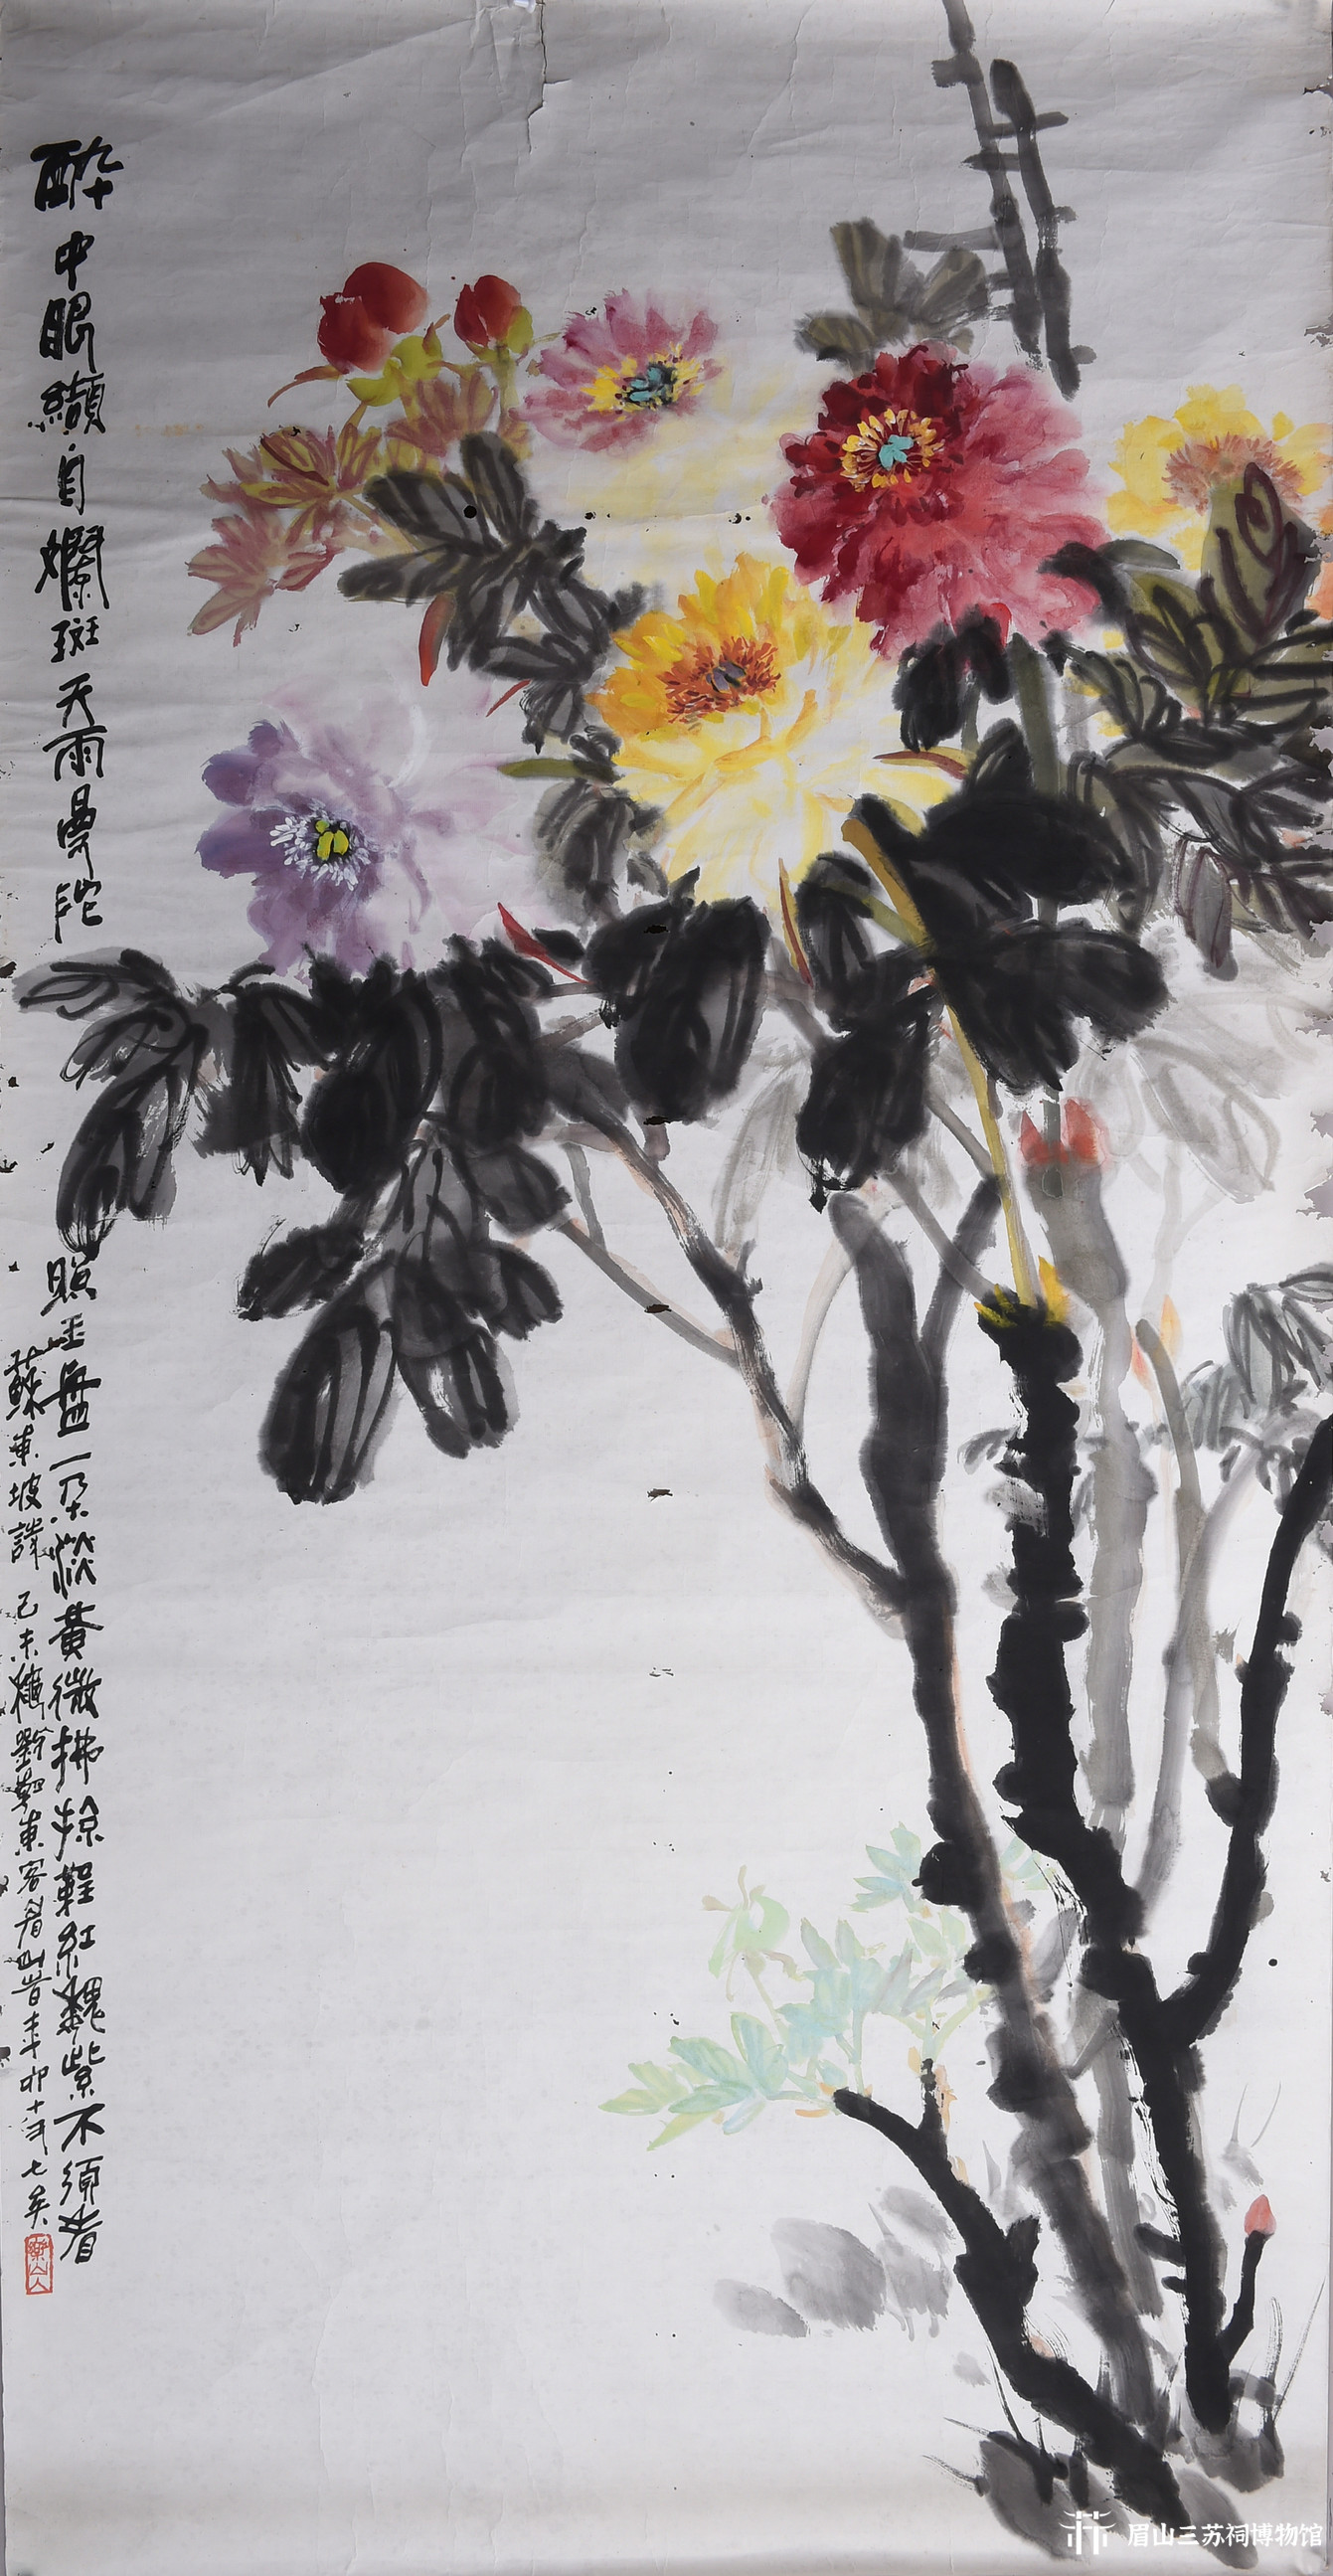 酔中眼纈自爛斑天雨曼陀
照玉盘一朵淡黃微拂掠鞓紅魏紫不須看
蘇東坡詩 己未穐劉東客眉山旹年十有七矣
眉山三苏祠博物馆